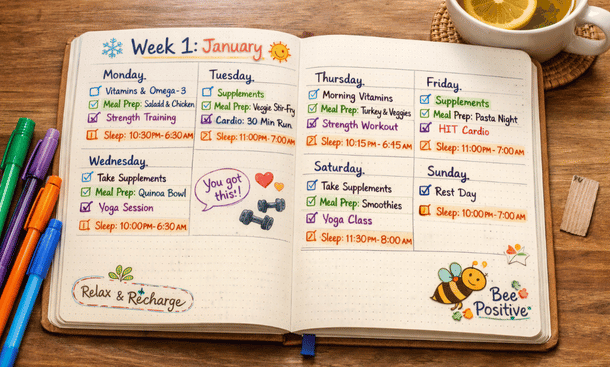 Week 1: January
Monday.
Vitamins & Omega-3
Meal Prep: Salald & Chicken
Strength Training
Sleep: 10:30PM-6:30AM
Tuesday.
Supplements
Meal Prep: Veggie Stir-Fry
Cardio: 30 Min Run
Sleep: 11:00PM-7:00AM
Wednesday.
Take Supplements
Meal Prep: Quinoa Bowl
Yoga Session
Sleep: 10:00PM-6:30AM
You got
this!!
Relax & Recharge
Thursday.
Morning Vitamins
Meal Prep: Turkey & Veggies
Strength Workout
Sleep: 10:15PM-6:45AM
Friday.
Supplements
Meal Prep: Pasta Night
HIT Cardio
Sleep: 11:00PM-7:00AM
Saturday.
Take Supplements
Meal Prep: Smoothies
Yoga Class
Sleep: 11:30PM-8:00AM
Sunday.
Rest Day
Sleep: 10:00PM-7:00AM
Bee
Positive